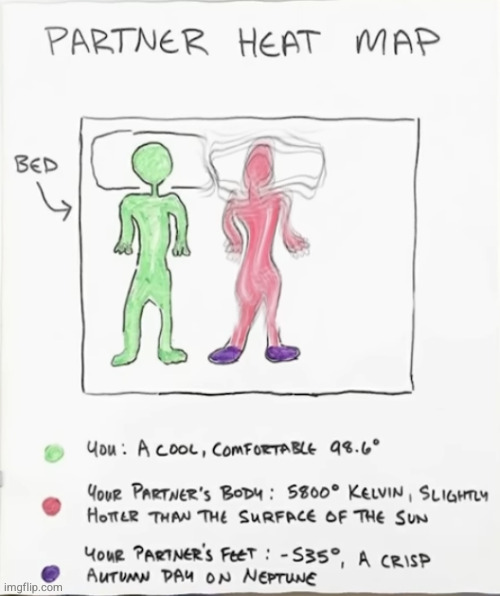 PARTNER HEAT MAP
BED
YOU: A COOL, COMFORTABLE 98.6°
YOUR PARTNER'S BODY: 5800° KELVIN, SLIGHTLY
HOTTER THAN THE SURFACE OF THE SUN
YOUR PARTNER'S FEET: -535°, A CRISP
AUTUMN DAY ON NEPTUNE
imgflip.com